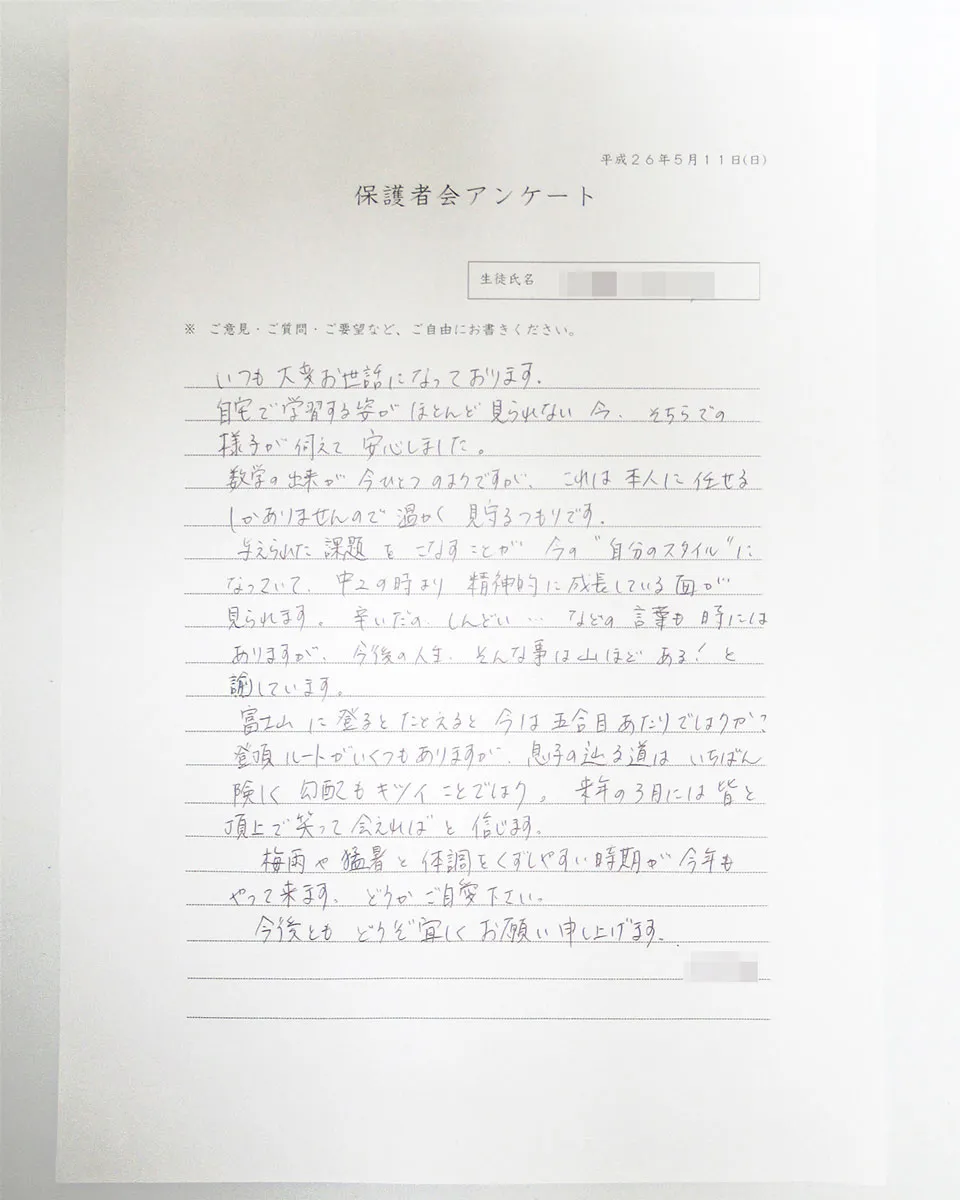 平成26年5月11日(日)
保護者会アンケート
生徒氏名
※ ご意見・ご質問・ご要望など、ご自由にお書きください。
いつも大変お世話になっております。
自宅で学習する姿がほとんど見られない今、そちらでの
様子が伺えて安心しました。
数学の出来が今ひとつのようですが、これは本人に任せる
しかありませんので温かく見守るつもりです。
与えられた課題をこなすことが今の"自分のスタイル"に
なっていて、中2の時より精神的に成長している面が
見られます。辛いだの、しんどい…などの言葉も時には
ありますが、今後の人生、そんな事は山ほどある!と
諭しています。
富士山に登るとたとえると今は五合目あたりでしょうか?
登頂ルートがいくつもありますが、息子の辿る道はいちばん
険しく勾配もキツイことでしょう。来年の3月には皆と
頂上で笑って会えればと信じます。
梅雨や猛暑と体調をくずしやすい時期が今年も
やって来ます。どうかご自愛下さい。
今後ともどうぞ宜しくお願い申し上げます。